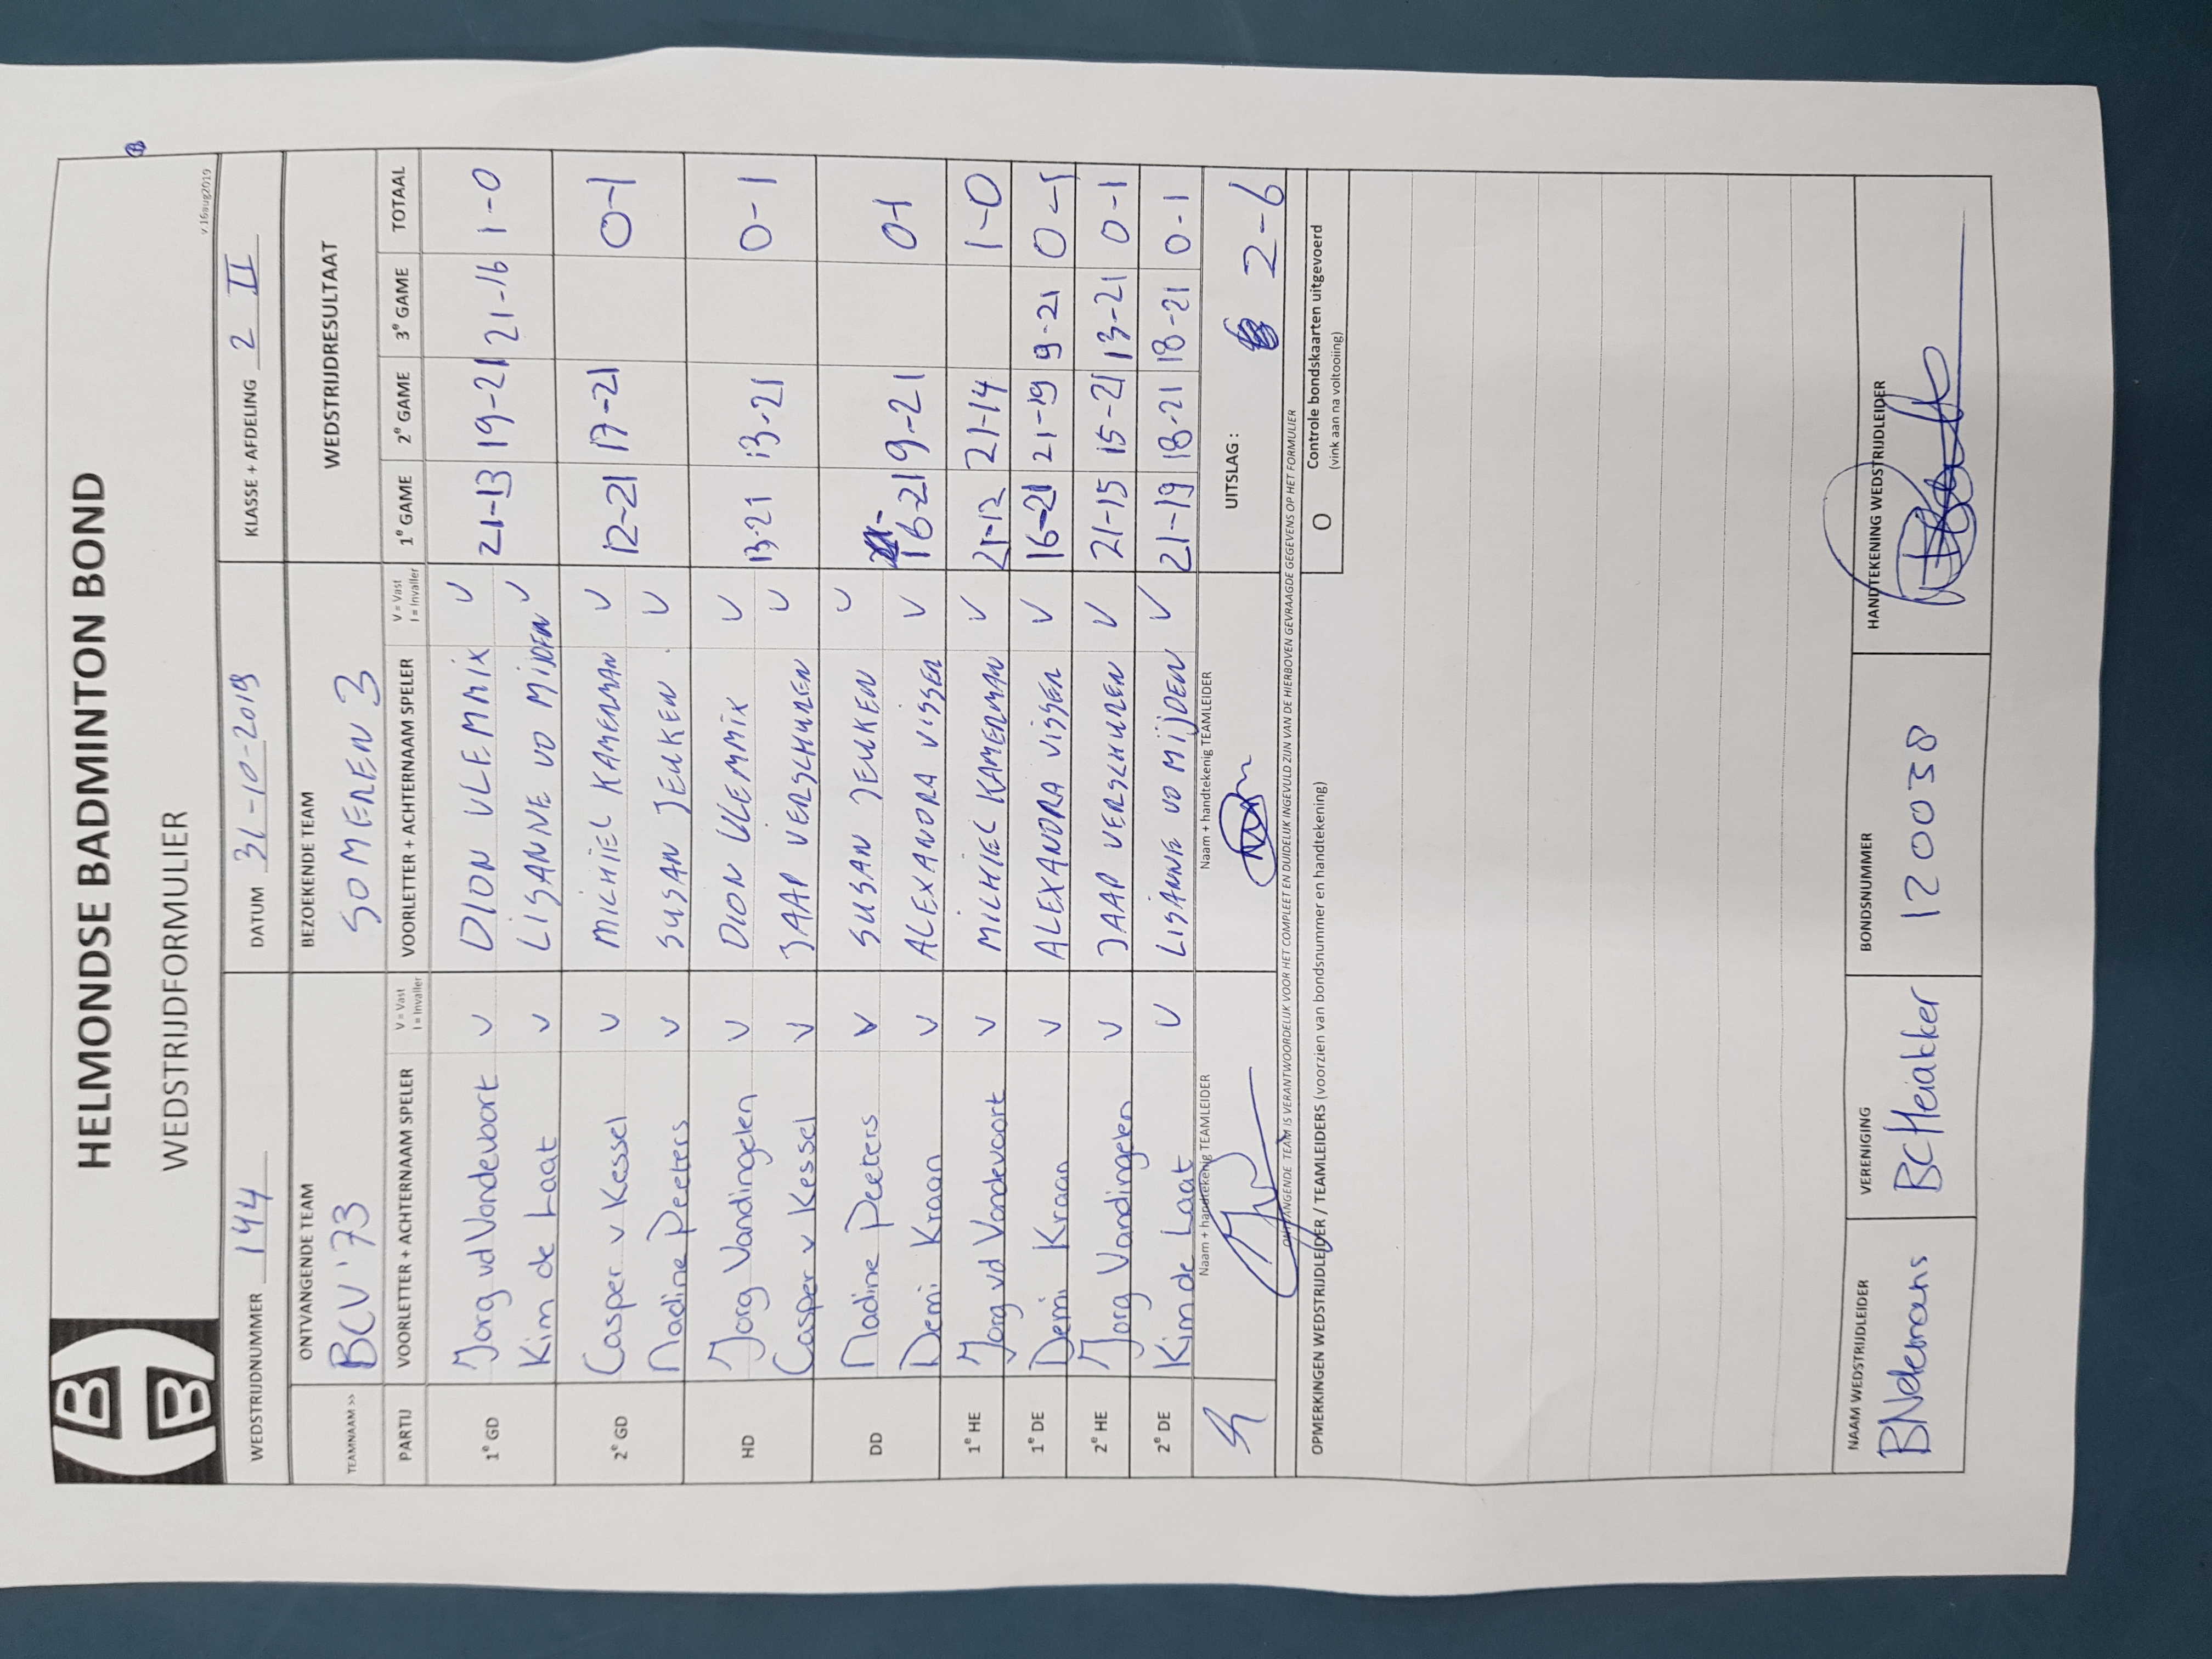 HELMONDSE BADMINTON BOND
WEDSTRIJDFORMULIER
v 16aug2019
WEDSTRIJDNUMMER 144 DATUM 31-10-2019 KLASSE + AFDELING 2 II
ONTVANGENDE TEAM BEZOEKENDE TEAM WEDSTRIJDRESULTAAT
TEAMNAAM >> BCV '73 SOMEREN 3
PARTIJ VOORLETTER + ACHTERNAAM SPELER V = Vast I = Invaller VOORLETTER + ACHTERNAAM SPELER V = Vast I = Invaller 1e GAME 2e GAME 3e GAME TOTAAL
1e GD Jorg vd Vondevoort V DION VLEMMIX V 21-13 19-21 21-16 1-0
Kim de Laat V LISANNE VD MIJDEN V
2e GD Casper v Kessel V MICHIEL KAMERMAN V 12-21 17-21 0-1
Nadine Peeters V SUSAN JEUKEN V
HD Jorg Vandingelen V DION VLEMMIX V 13-21 13-21 0-1
Casper v Kessel V JAAP VERSCHUREN V
DD Nadine Peeters V SUSAN JEUKEN V 16-21 9-21 0-1
Demi Kraan V ALEXANDRA VISSER V
1e HE Jorg vd Vondevoort V MICHIEL KAMERMAN V 21-12 21-14 1-0
1e DE Demi Kraan V ALEXANDRA VISSER V 16-21 21-19 9-21 0-1
2e HE Jorg Vandingelen V JAAP VERSCHUREN V 21-15 15-21 13-21 0-1
2e DE Kim de Laat V LISANNE VD MIJDEN V 21-19 18-21 18-21 0-1
Naam + handtekenig TEAMLEIDER Naam + handtekenig TEAMLEIDER UITSLAG : 2-6
ONTVANGENDE TEAM IS VERANTWOORDELIJK VOOR HET COMPLEET EN DUIDELIJK INGEVULD ZIJN VAN DE HIERBOVEN GEVRAAGDE GEGEVENS OP HET FORMULIER
OPMERKINGEN WEDSTRIJDLEIDER / TEAMLEIDERS (voorzien van bondsnummer en handtekening) O Controle bondskaarten uitgevoerd
(vink aan na voltooiing)
NAAM WEDSTRIJDLEIDER VERENIGING BONDSNUMMER HANDTEKENING WEDSTRIJDLEIDER
BC Heiakker 120038